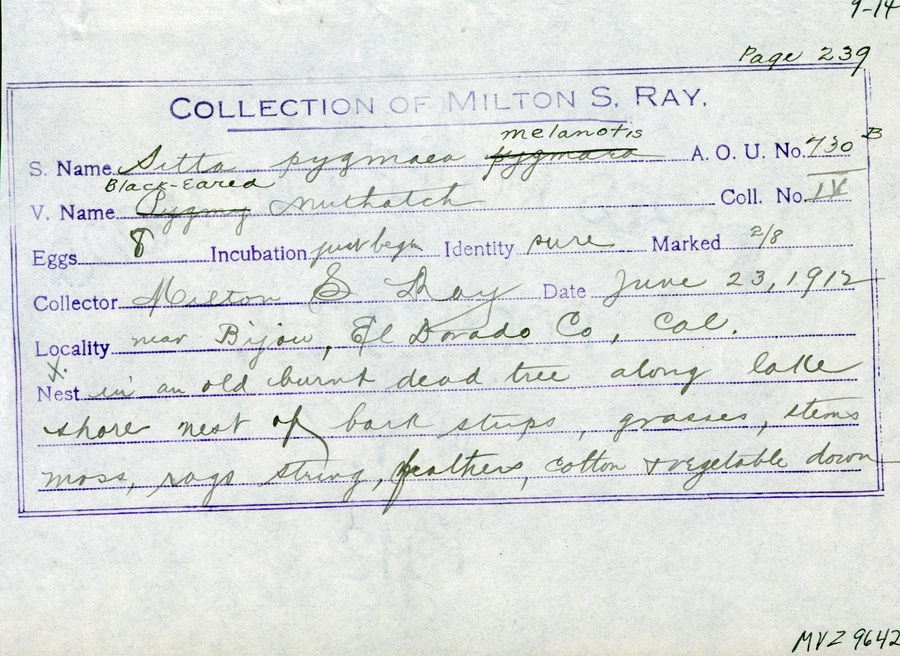 9-14
Page 239
COLLECTION OF MILTON S. RAY.
melanotis
S. Name Sitta pygmaea pygmaea A. O. U. No. 730 B
Black-Eared
V. Name Pygmy nuthatch Coll. No. IV
Eggs 8 Incubation just begun Identity sure Marked 2/8
Collector Milton S Ray Date June 23, 1912
Locality near Bijou, El Dorado Co, Cal.
X.
Nest in an old burnt dead tree along lake
shore nest of bark strips, grasses, stems
moss, rags string, feathers, cotton & vegetable down
MVZ 9642